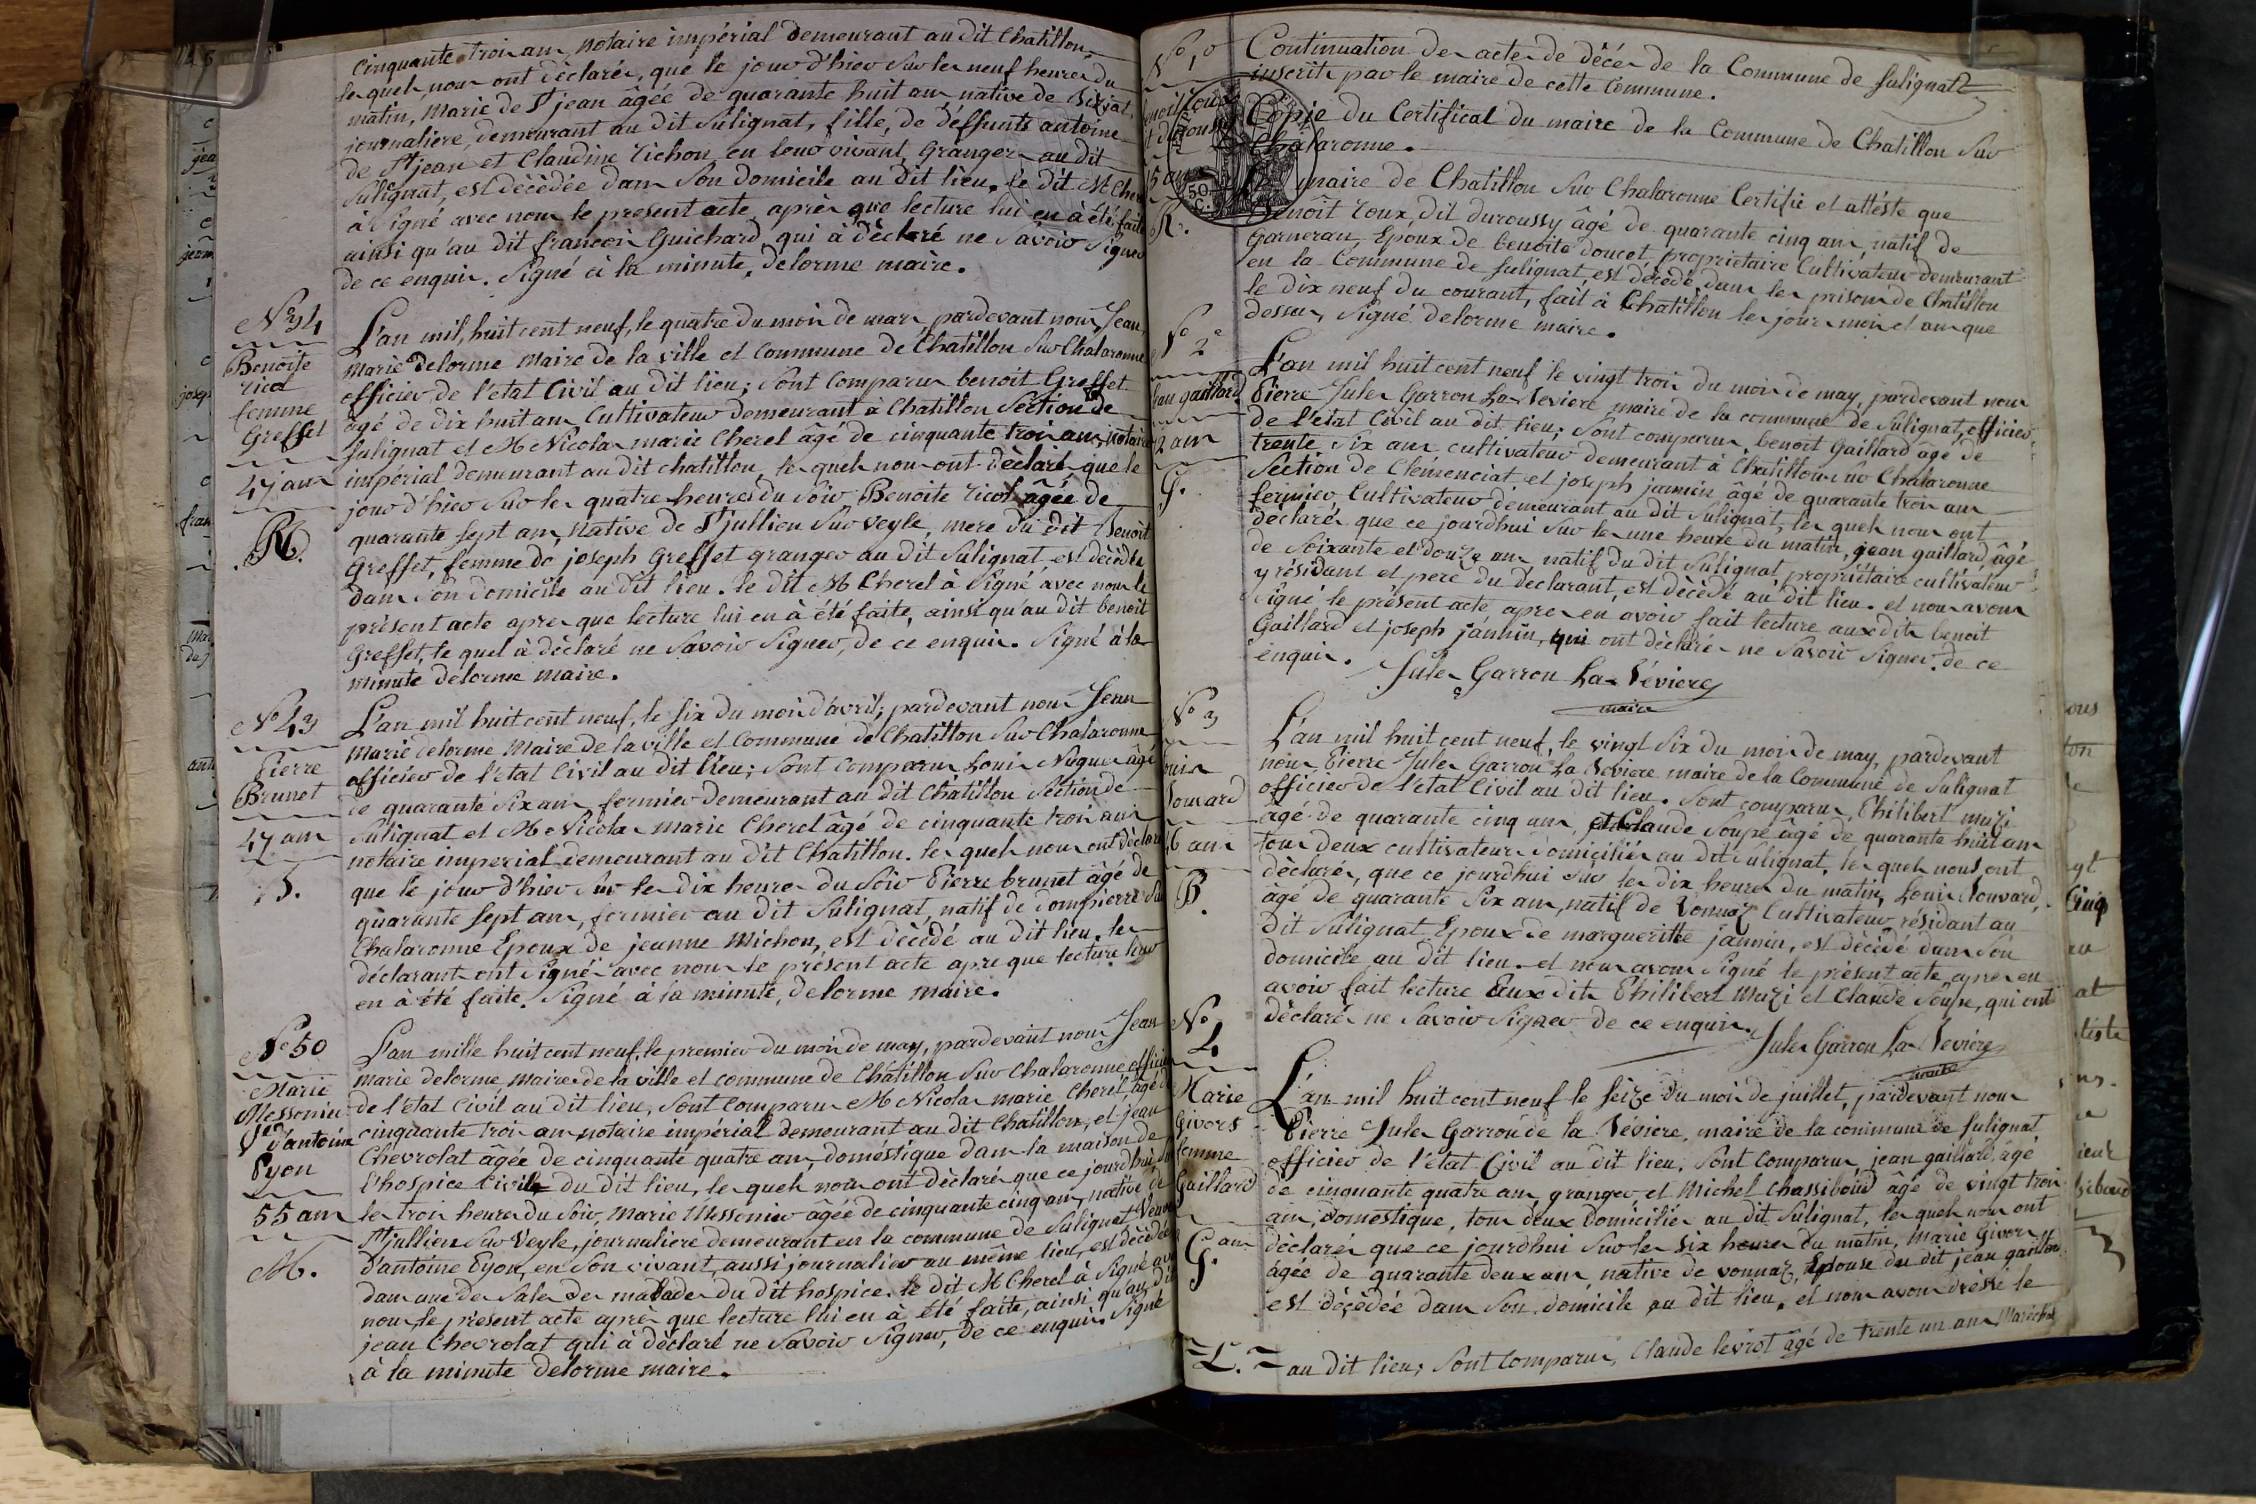 cinquante trois ans, notaire impérial demeurant au dit Chatillon,
lesquels nous ont déclarés, que le jour d'hier sur les neuf heures du
matin, Marie de St jean âgée de quarante huit ans native de
journaliere, demeurant au dit Sulignat, fille, de déffunts antoine
de St jean et Claudine Tichon, en leur vivant, Grangers au dit
Sulignat, est décédée dans son domicile au dit lieu. le dit Mr Cher
à signé avec nous le present acte, après que lecture lui en à été faite
ainsi qu'au dit françois Guichard, qui à déclaré ne savoir signer
de ce enquis. Signé à la minute, delorme maire.
No 34
Benoîte
ricol
femme
Greffet
47 ans
R.
L'an mil, huit cent neuf, le quatre du mois de mars, pardevant nous, Jean
Marie delorme Maire de la ville et Commune de Chatillon sur Chalaronne
officier de l'etat Civil au dit lieu; sont comparus benoit Greffet
âgé de dix huit ans Cultivateur demeurant à Chatillon Section de
Sulignat et Mr Nicolas marie Cherel âgé de cinquante trois ans, notaire
impérial demeurant au dit chatillon, lesquels nous ont déclaré que le
jour d'hier sur les quatre heures du soir Benoite ricol âgée de
quarante sept ans, native de St jullien sur veyle, mere du dit Benoit
Greffet, femme de joseph Greffet granger au dit Sulignat, est décédée
dans son domicile au dit lieu. le dit Mr Cherel à signé avec nous le
présent acte apres que lecture lui en à été faite, ainsi qu'au dit benoit
Greffet, lequel à déclaré ne savoir signer, de ce enquis. Signé à la
minute delorme maire.
No 43
Pierre
Brunet
47 ans
B.
L'an mil huit cent neuf, le six du mois d'avril, pardevant nous Jean
Marie delorme Maire de la ville et Commune de Chatillon sur Chalaronne
officier de l'etat Civil au dit lieu; sont comparus Louis Nugue âgé
de quarante six ans, fermier demeurant au dit Chatillon Section de
Sulignat et Mr Nicolas Marie Cherel âgé de cinquante trois ans
notaire imperial demeurant au dit Chatillon. lesquels nous ont déclaré
que le jour d'hier sur les dix heures du soir Pierre brunet âgé de
quarante sept ans, fermier au dit Sulignat, natif de Dompierre sur
Chalaronne Epoux de jeanne Michon, est décédé au dit lieu. les
déclarants ont signé avec nous le présent acte apres que lecture leur
en à été faite. Signé à la minute, delorme maire.
No 50
Marie
Messonier
Ve d'antoine
Pyon
55 ans
M.
L'an mille huit cent neuf, le premier du mois de may, pardevant nous Jean
Marie delorme, Maire de la ville et commune de Chatillon sur Chalaronne officier
de l'etat Civil au dit lieu, sont comparus Mr Nicolas marie Cherel, âgé de
cinquante trois ans notaire impérial demeurant au dit Chatillon, et jean
Chevrolat âgée de cinquante quatre ans, doméstique dans la maison de
l'hospice Civile du dit lieu, lesquels nous ont déclaré que ce jourdhui, sur
les trois heures du soir, Marie Messonier âgée de cinquante cinq ans, native de
St jullien sur Veyle, journaliere demeurant en la commune de Sulignat, Veuve
d'antoine Pyon, en son vivant, aussi journalier au même lieu, est décédée
dans une des sales des malades du dit hospice. le dit Mr Cherel à signé avec
nous, le présent acte après que lecture lui en à été faite, ainsi qu'au dit
jean Chevrolat qui à déclaré ne savoir signer, de ce enquis. Signé
à la minute delorme maire.
No 1o
R.
Continuation des actes de décés de la Commune de Sulignat
inscrits par le maire de cette Commune.
Copie du Certificat du maire de la Commune de Chatillon sur
Chalaronne.
50 C.
maire de Chatillon sur Chalaronne Certifie et attéste que
Benoît roux, dit duroussy âgé de quarante cinq ans, natif de
Garneran, Epoux de benoite doucet, proprietaire Cultivateur demeurant
en la Commune de Sulignat, est décédé, dans les prisons de Chatillon
le dix neuf du courant, fait à Chatillon les jour mois et ans que
dessus, Signé delorme maire.
No 2e
Jean gaillard
72 ans
G.
L'an mil huit cent neuf le vingt trois du mois de may, pardevant nous
Pierre Jules Garron La Seviere maire de la commune de Sulignat, officier
de l'état Civil au dit lieu; sont comparus, benoit Gaillard âgé de
trente six ans cultivateur demeurant à Chatillon sur Chalaronne
Section de Clémenciat, et joseph jannin âgé de quarante trois ans
fermier, Cultivateur demeurant au dit Sulignat, lesquels nous ont
déclarés que ce jourdhui sur les une heure du matin, jean gaillard, âgé
de soixante et douze ans natif du dit Sulignat, propriétaire cultivateur
y résidant et pere du déclarant, est décédé au dit lieu. et nous avons
signé le présent acte apres en avoir fait lecture aux dits benoit
Gaillard et joseph jannin, qui ont déclarés ne savoir signer. de ce
enquis.
Jules Garron La Seviere
maire
No 3
Louis
Bouvard
46 ans
B.
L'an mil huit cent neuf, le vingt six du mois de may, pardevant
nous Pierre Jules Garron La Seviere maire de la Commune de Sulignat
officier de l'état Civil au dit lieu. sont comparus, Philibert muzi
âgé de quarante cinq ans, et Claude Soupe âgé de quarante huit ans
tous deux cultivateurs domiciliés au dit Sulignat, lesquels nous ont
déclarés, que ce jourdhui sur les dix heures du matin, Louis Bouvard,
âgé de quarante six ans, natif de Vonnaz Cultivateur, résidant au
dit Sulignat, Epoux de margueritte jannin, est décédé dans son
domicile au dit lieu. et nous avons signé le présent acte, apres en
avoir fait lecture aux dits Philibert Muzi et Claude Soupe, qui ont
déclarés ne savoir signer de ce enquis.
Jules Garron La Seviere
maire
No
4
Marie
Givors
femme
Gaillard
ans
G.
L'an mil huit cent neuf le seize du mois de juillet, pardevant nous
Pierre Jules Garron de la Seviere, maire de la commune de Sulignat
officier de l'état Civil au dit lieu. sont comparus, jean gaillard, âgé
de cinquante quatre ans, granger, et Michel Chassiboud âgé de vingt trois
ans, domestique, tous deux domiciliés au dit Sulignat, lesquels nous ont
déclarés que ce jourdhui sur les six heures du matin, Marie Givors,
âgée de quarante deux ans, native de vonnaz, Epouse du dit jean gaillard
est décédée dans son domicile au dit lieu. et nous avons dréssé le
=L.= au dit lieu; sont comparus, Claude levrot âgé de trente un ans Maréchal